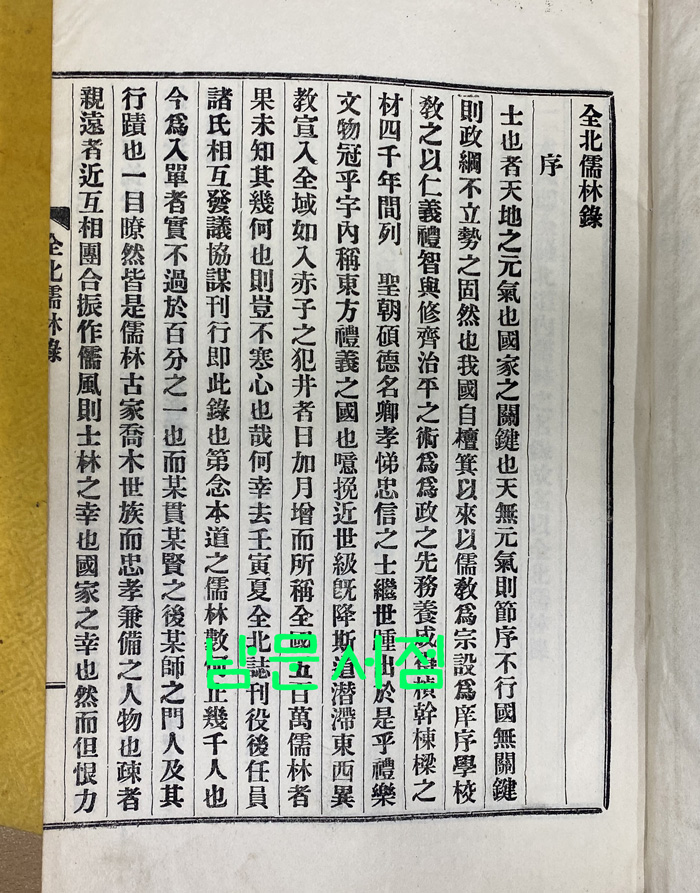 全北儒林錄
序
士也者天地之元氣也國家之關鍵也天無元氣則節序不行國無關鍵
則政綱不立勢之固然也我國自檀箕以來以儒敎爲宗設爲庠序學校
敎之以仁義禮智與修齊治平之術爲爲政之先務養成楨幹棟樑之
材四千年間列 聖朝碩德名卿孝悌忠信之士繼世踵出於是乎禮樂
文物冠乎宇內稱東方禮義之國也噫挽近世級旣降斯道潜滯東西異
教宣入全域如入赤子之犯井者日加月增而所稱全國五百萬儒林者
果未知其幾何也則豈不寒心也哉何幸去壬寅夏全北誌刊役後任員
諸氏相互發議協謀刊行即此錄也第念本道之儒林數何止幾千人也
今爲入單者實不過於百分之一也而某貫某賢之後某師之門人及其
行蹟也一目瞭然皆是儒林古家喬木世族而忠孝兼備之人物也疎者
親遠者近互相團合振作儒風則士林之幸也國家之幸也然而但恨力
全北儒林錄
남문서점